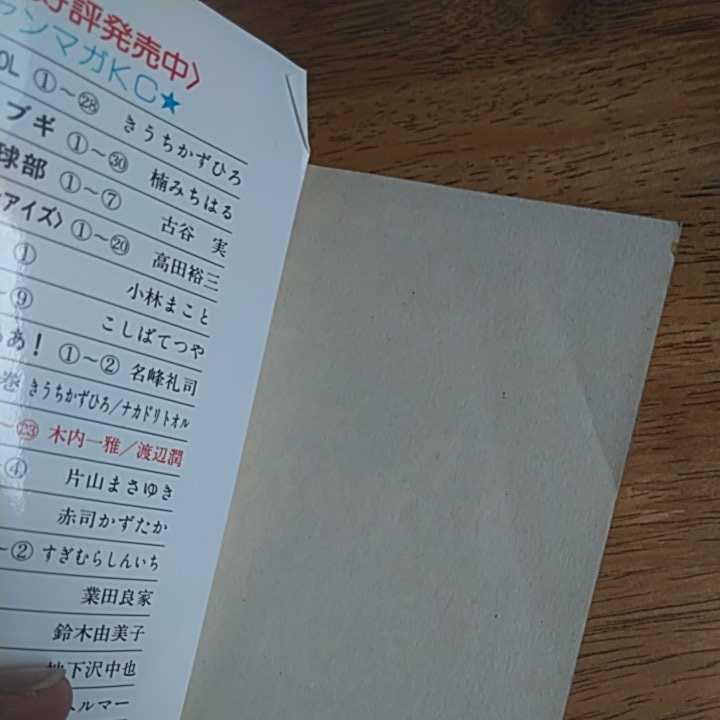 好評発売中〉
ンマガKC★
OL ①～㉘ きうちかずひろ
ブギ ①～㉚ 楠みちはる
球部 ①～⑦ 古谷 実
アイズ〉①～⑳ 高田裕三
① 小林まこと
～⑨ こしばてつや
ああ! ①～② 名峰礼司
巻 きうちかずひろ/ナカドリトオル
～㉓ 木内一雅/渡辺潤
④ 片山まさゆき
赤司かずたか
～② すぎむらしんいち
業田良家
鈴木由美子
地下沢中也
ルマー